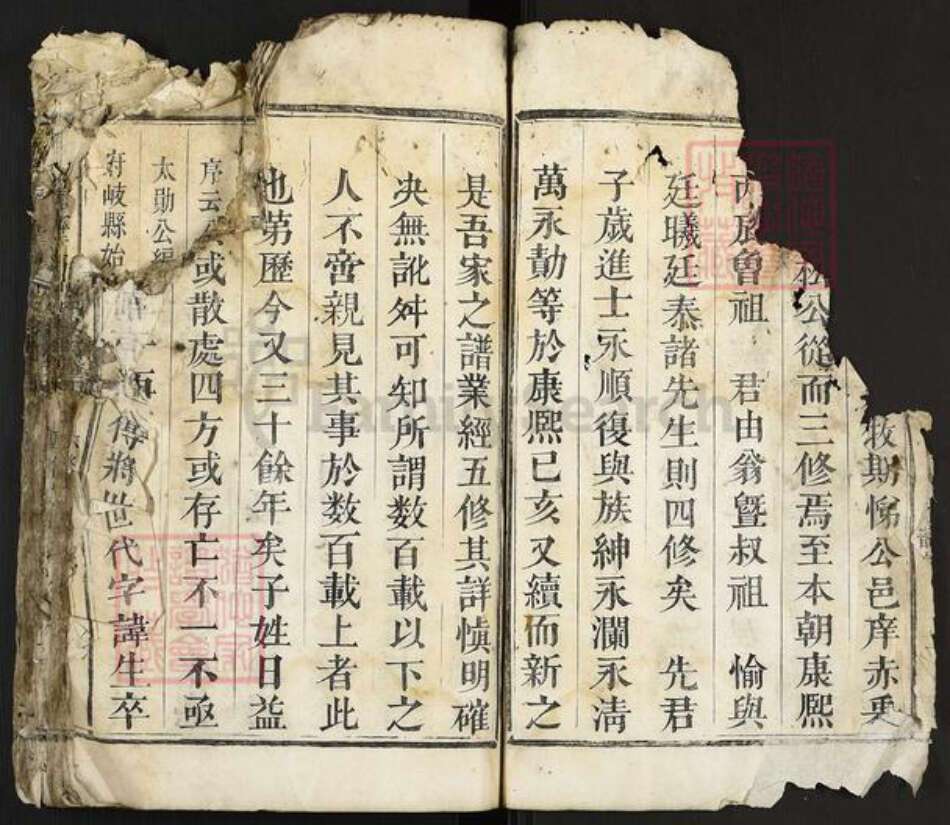 牧期悌公邑庠赤
公從而三修焉至本朝康熙
族曾祖 君由翁暨叔祖 愉與
廷曦廷泰諸先生則四修矣 先君
子歲進士永順復與族紳永瀾永清
萬永勣等於康熙己亥又續而新之
是吾家之譜業經五修其詳慎明確
决無訛舛可知所謂数百載以下之
人不啻親見其事於数百載上者此
也第歷今又三十餘年矣子姓日益
或散處四方或存亡不一不亟
傳將世代字諱生卒
序云
太勛公編
府岐縣始
FamilySearch